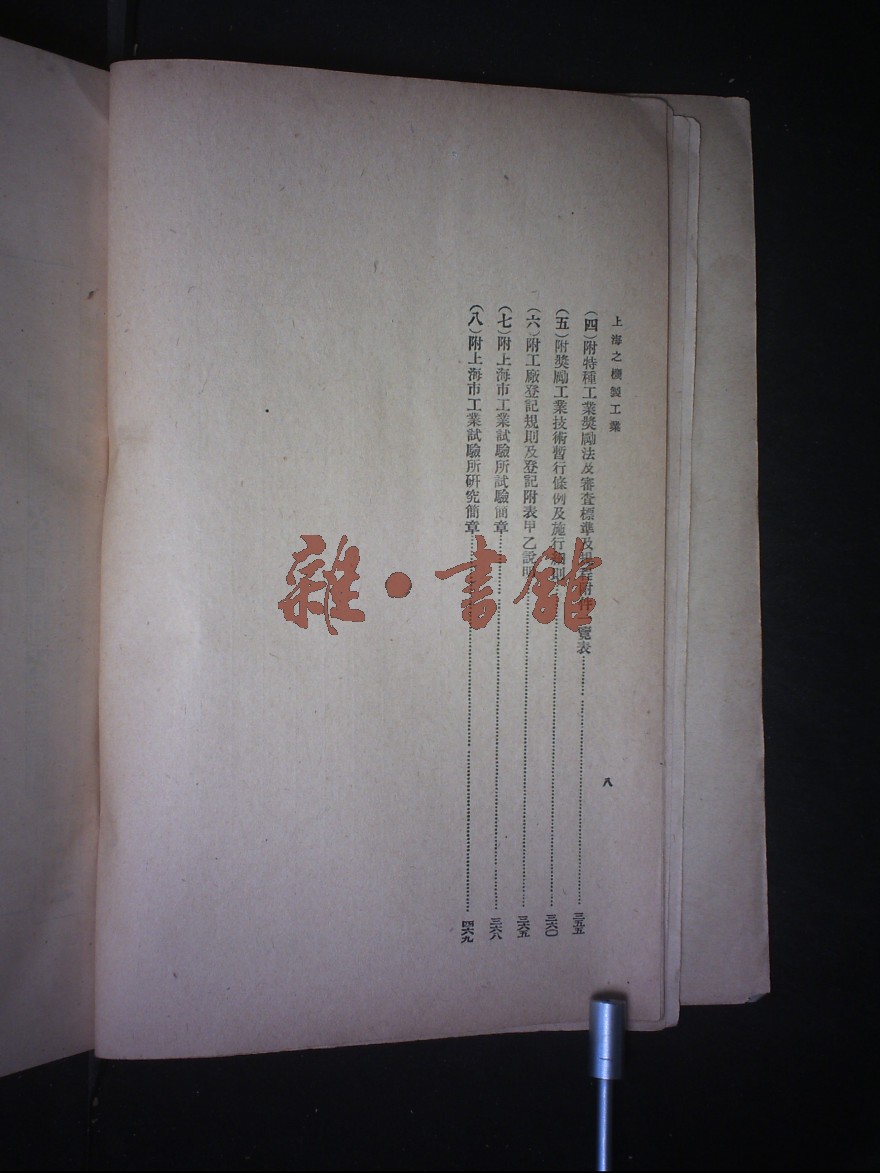 上海之機製工業
八
(四)附特種工業獎勵法及審查標準及 附件 覽表……三五五
(五)附獎勵工業技術暫行條例及施行細則……三六〇
(六)附工廠登記規則及登記附表甲乙說明……三六五
(七)附上海市工業試驗所試驗簡章……三六八
(八)附上海市工業試驗所研究簡章……四六九
雜·書館